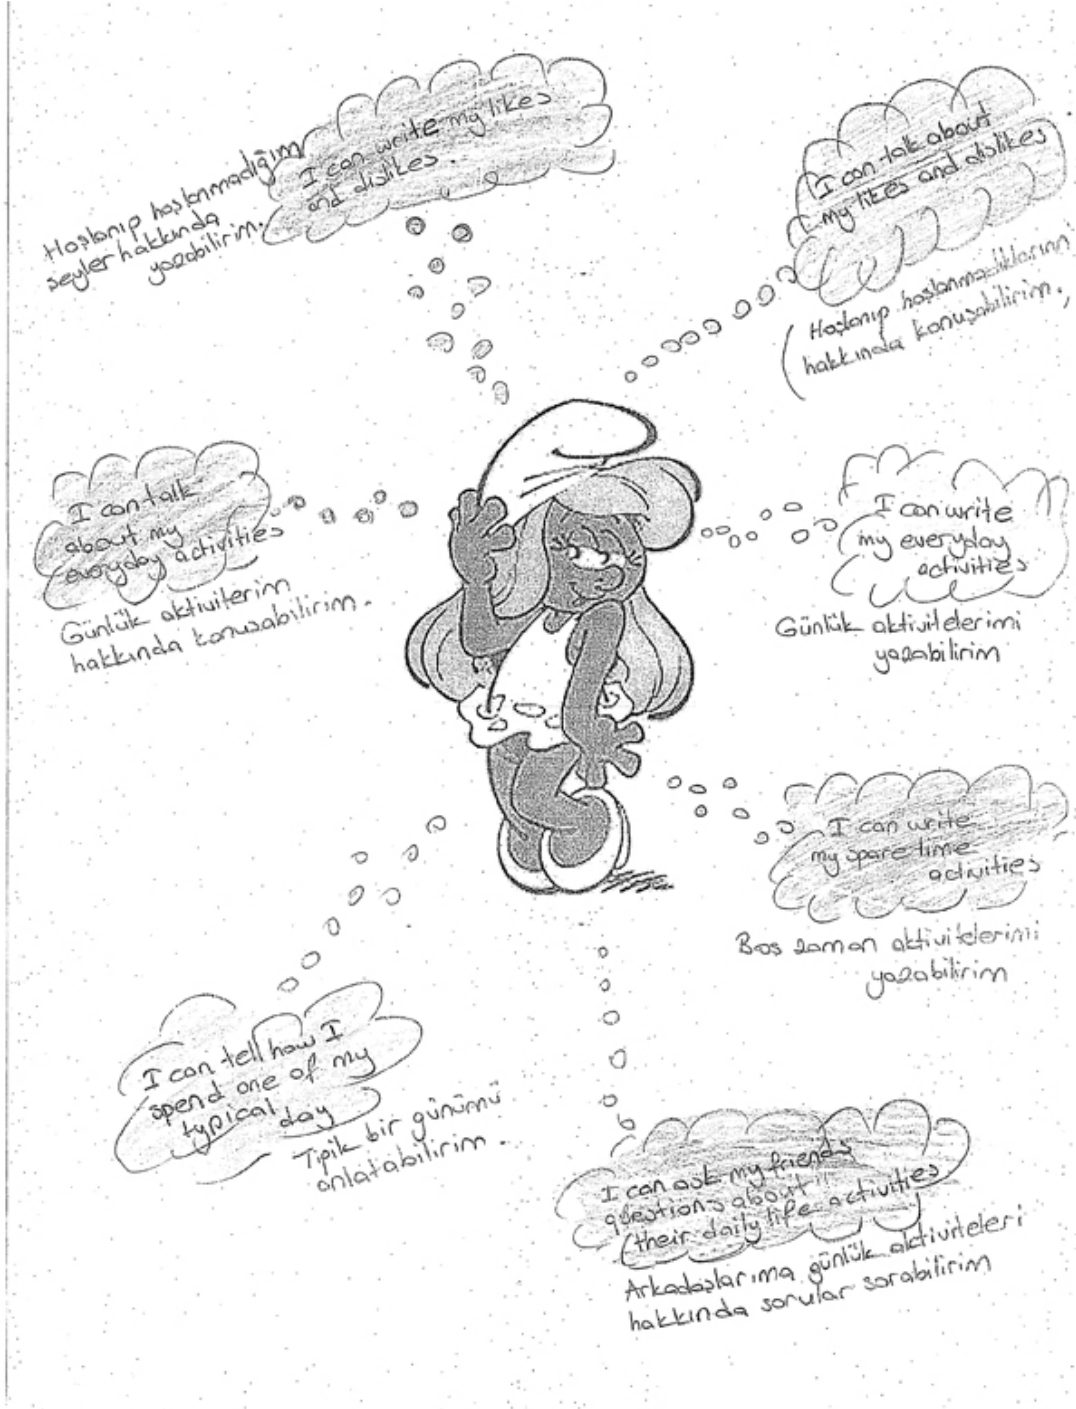 I can write my likes
and dislikes.
Hoşlanıp hoşlanmadığım
şeyler hakkında
yazabilirim.
I can talk about
my likes and dislikes
(Hoşlanıp hoşlanmadıklarının
hakkında konuşabilirim.
I can talk
about my
everyday activities
Günlük aktivitelerim
hakkında konuşabilirim.
I can write
my everyday
activities
Günlük aktivitelerimi
yazabilirim
I can write
my spare time
activities
Boş zaman aktivitelerimi
yazabilirim
I can tell how I
spend one of my
typical
day
Tipik bir günümü
anlatabilirim.
I can ask my friends
questions about
their daily life activities
Arkadaşlarıma günlük aktiviteleri
hakkında sorular sorabilirim